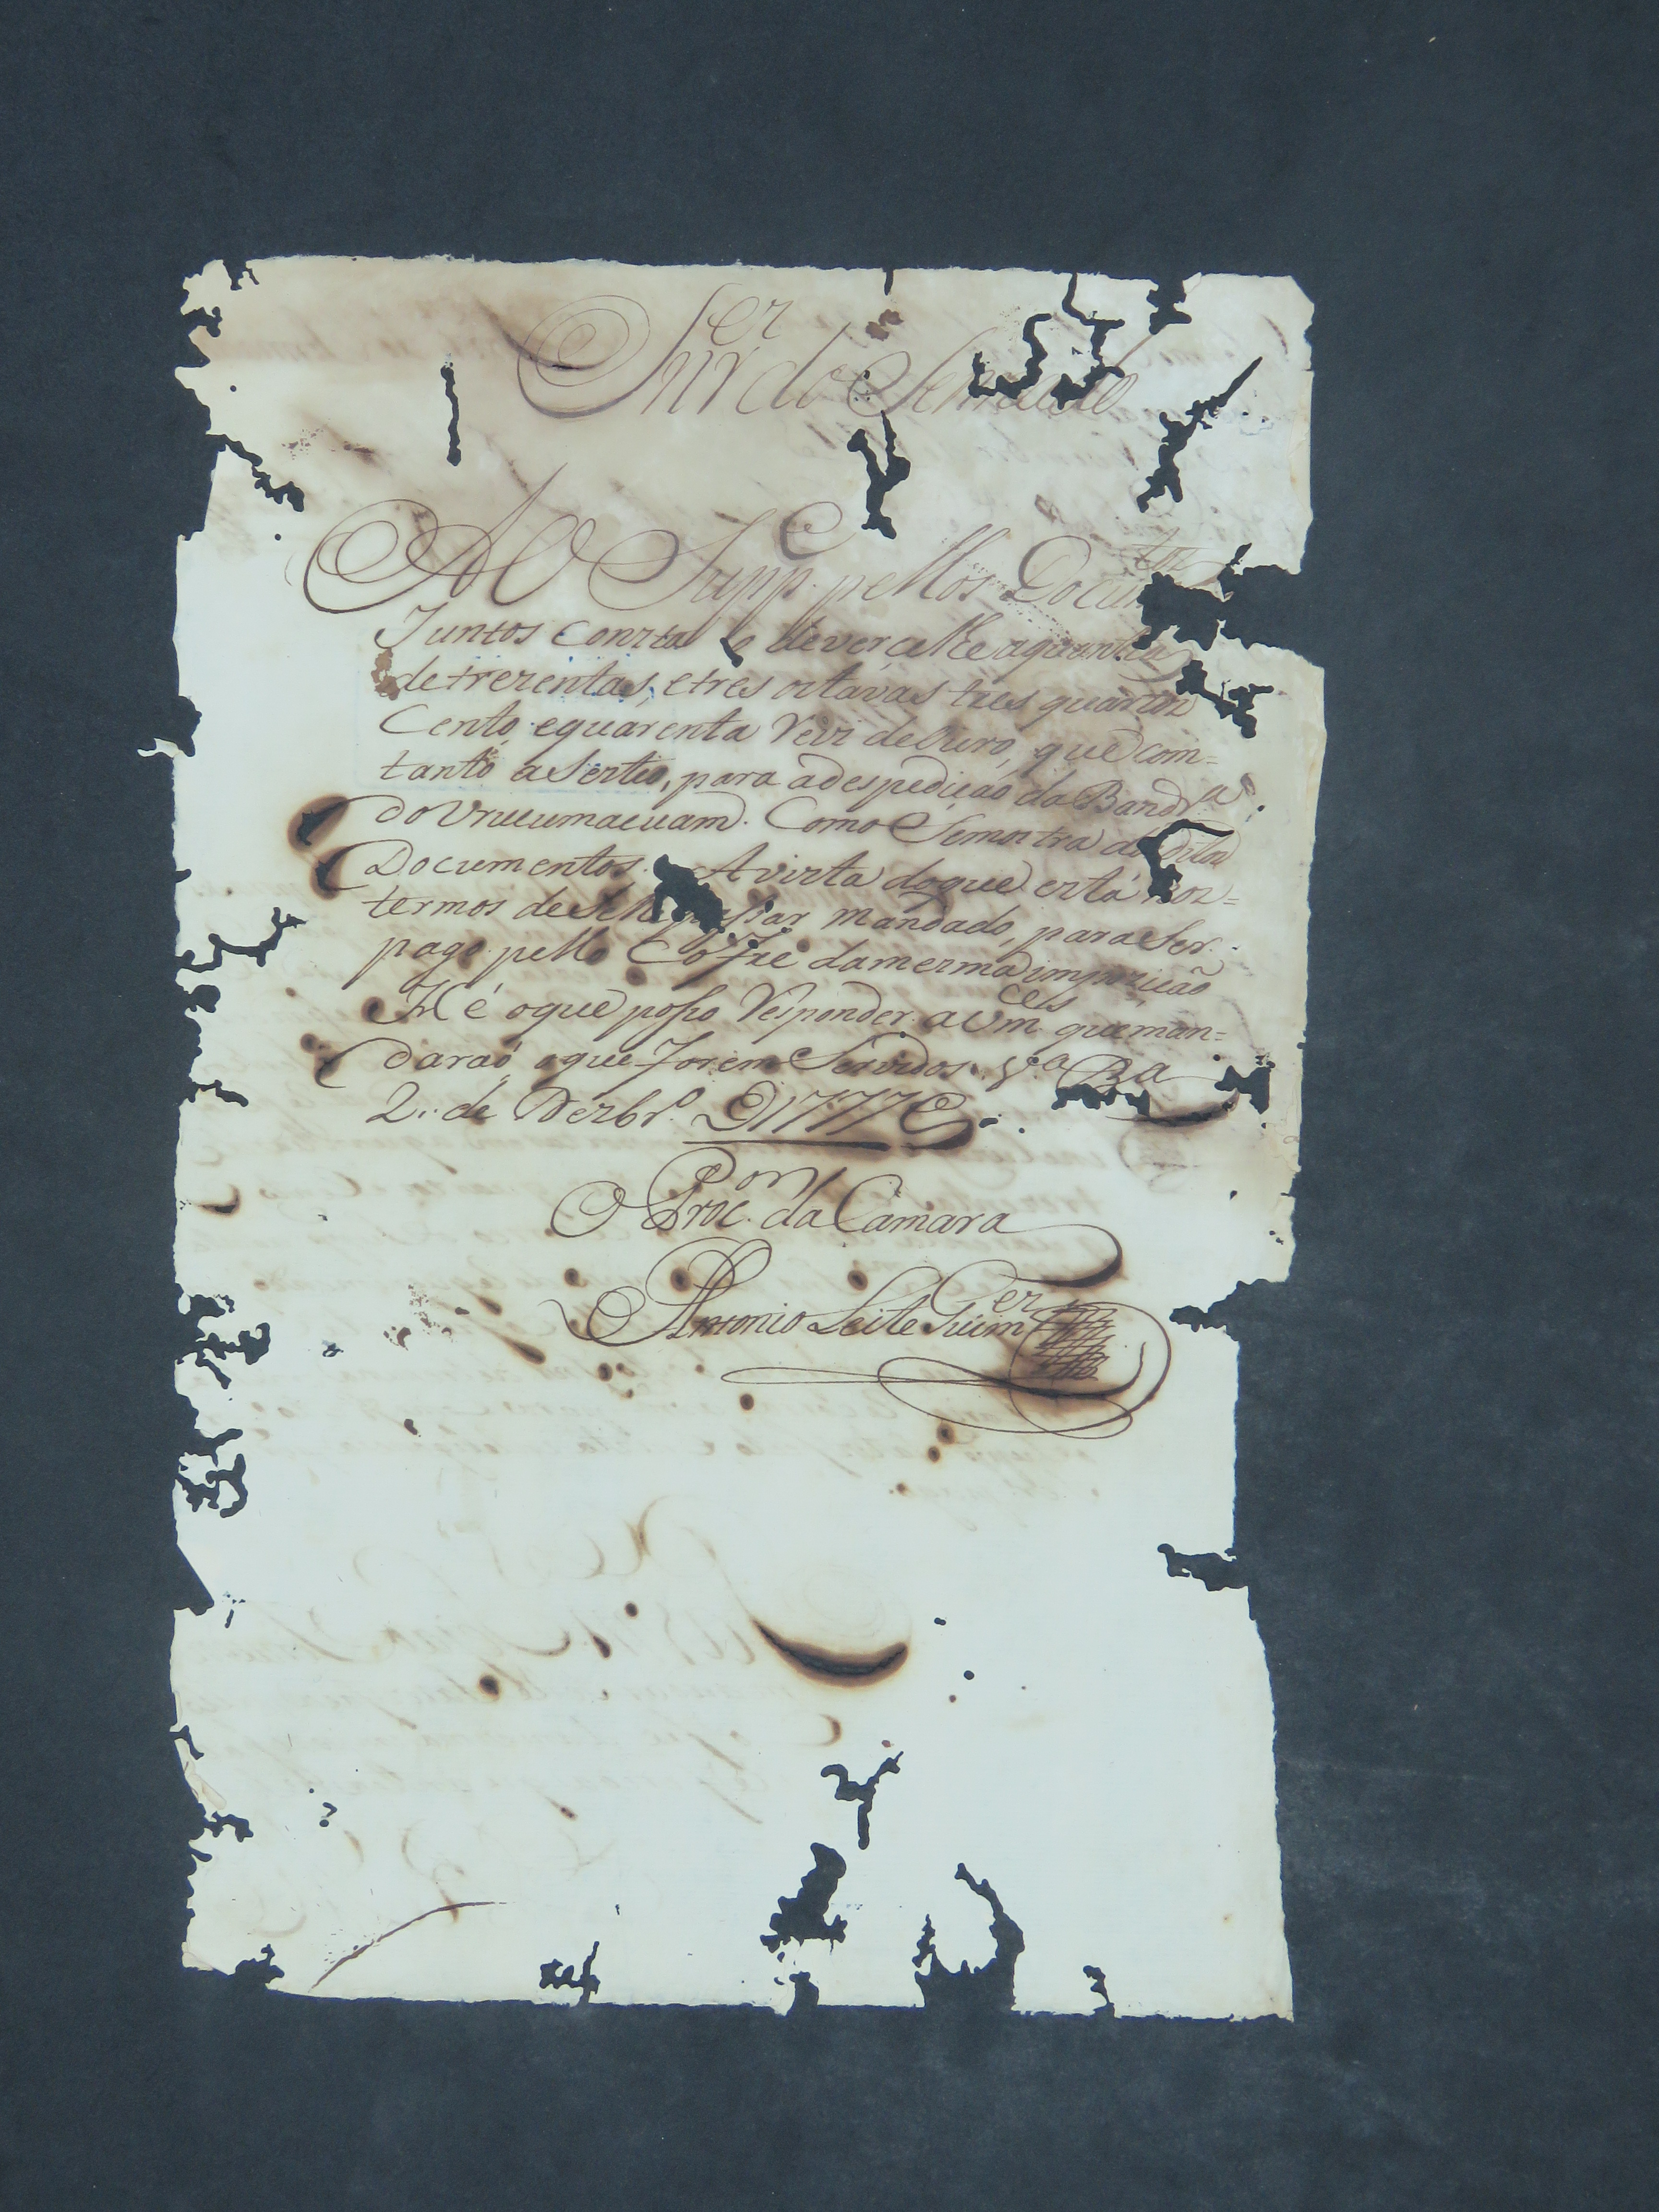 Snr.es do Sennado
Ao Supp.e pellos Docum.tos
Juntos Consta o deverçelhe aquantia
detrezentas, etres oitavas tres quartos
Cento, equarenta Reis deOuro, que com=
tanto asestio, para adespediçaõ da Band.ra
do Urucumacuam. Como Semostra dos Ditos
Documentos. Avista doque está nos=
termos de Selhe passar mandado, para Ser.
pago pello Cofre damesma impoziçaõ
He é oque poſso Responder. aVm.ces queman=
daraõ, oque forem Servidos. V.a Ba
2. de Dezbr.o D 1777
O Proc.or da Camara
Antonio Leite Guim.es